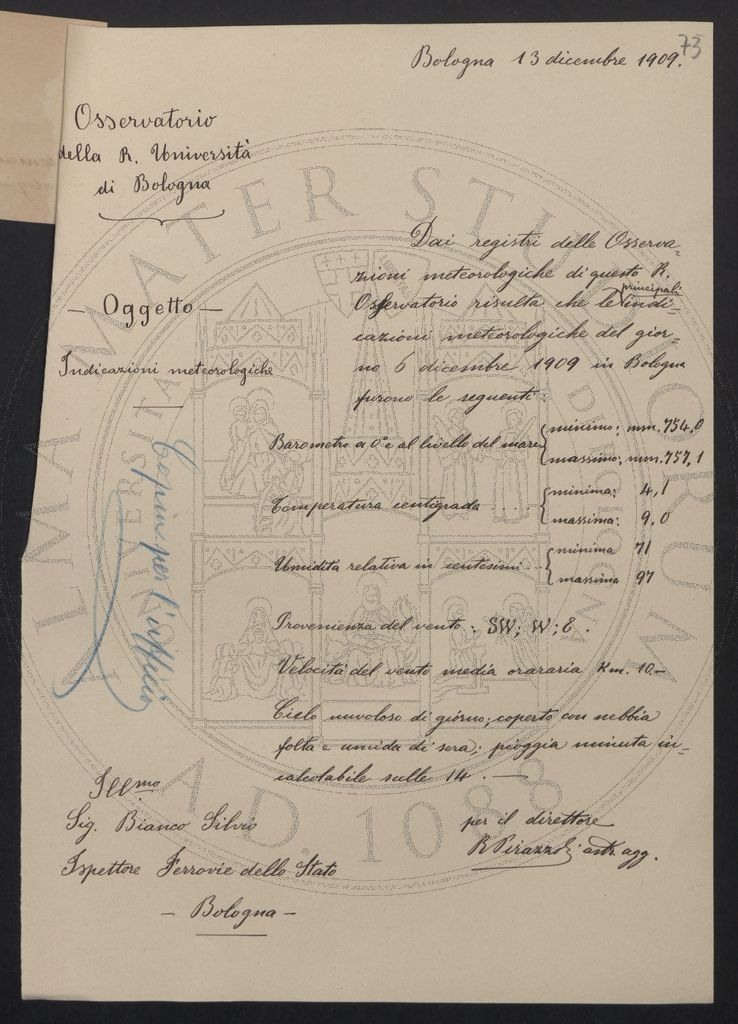 73
Bologna 13 dicembre 1909.
Osservatorio
della R. Università
di Bologna
Dai registri delle Osserva-
zioni meteorologiche di questo R.
Osservatorio risulta che le principali indi-
cazioni meteorologiche del gior-
no 6 dicembre 1909 in Bologna
furono le seguenti:
— Oggetto —
Indicazioni meteorologiche
Barometro a 0° e al livello del mare { minimo: mm. 754,0
massimo: mm. 757,1
Temperatura centigrada .... { minima: 4,1
massima: 9,0
Umidità relativa in centesimi ... { minima 71
massima 97
Provenienza del vento: SW; W; E.
Velocità del vento media orararia Km. 10—
Cielo nuvoloso di giorno; coperto con nebbia
folta e umida di sera; pioggia minuta in-
calcolabile sulle 14. —
Copia per l'ufficio
Illmo
Sig. Bianco Silvio
Ispettore Ferrovie dello Stato
— Bologna —
per il direttore
R Pirazzoli astr. agg.
ALMA MATER STUDIORUM
A.D. 1088